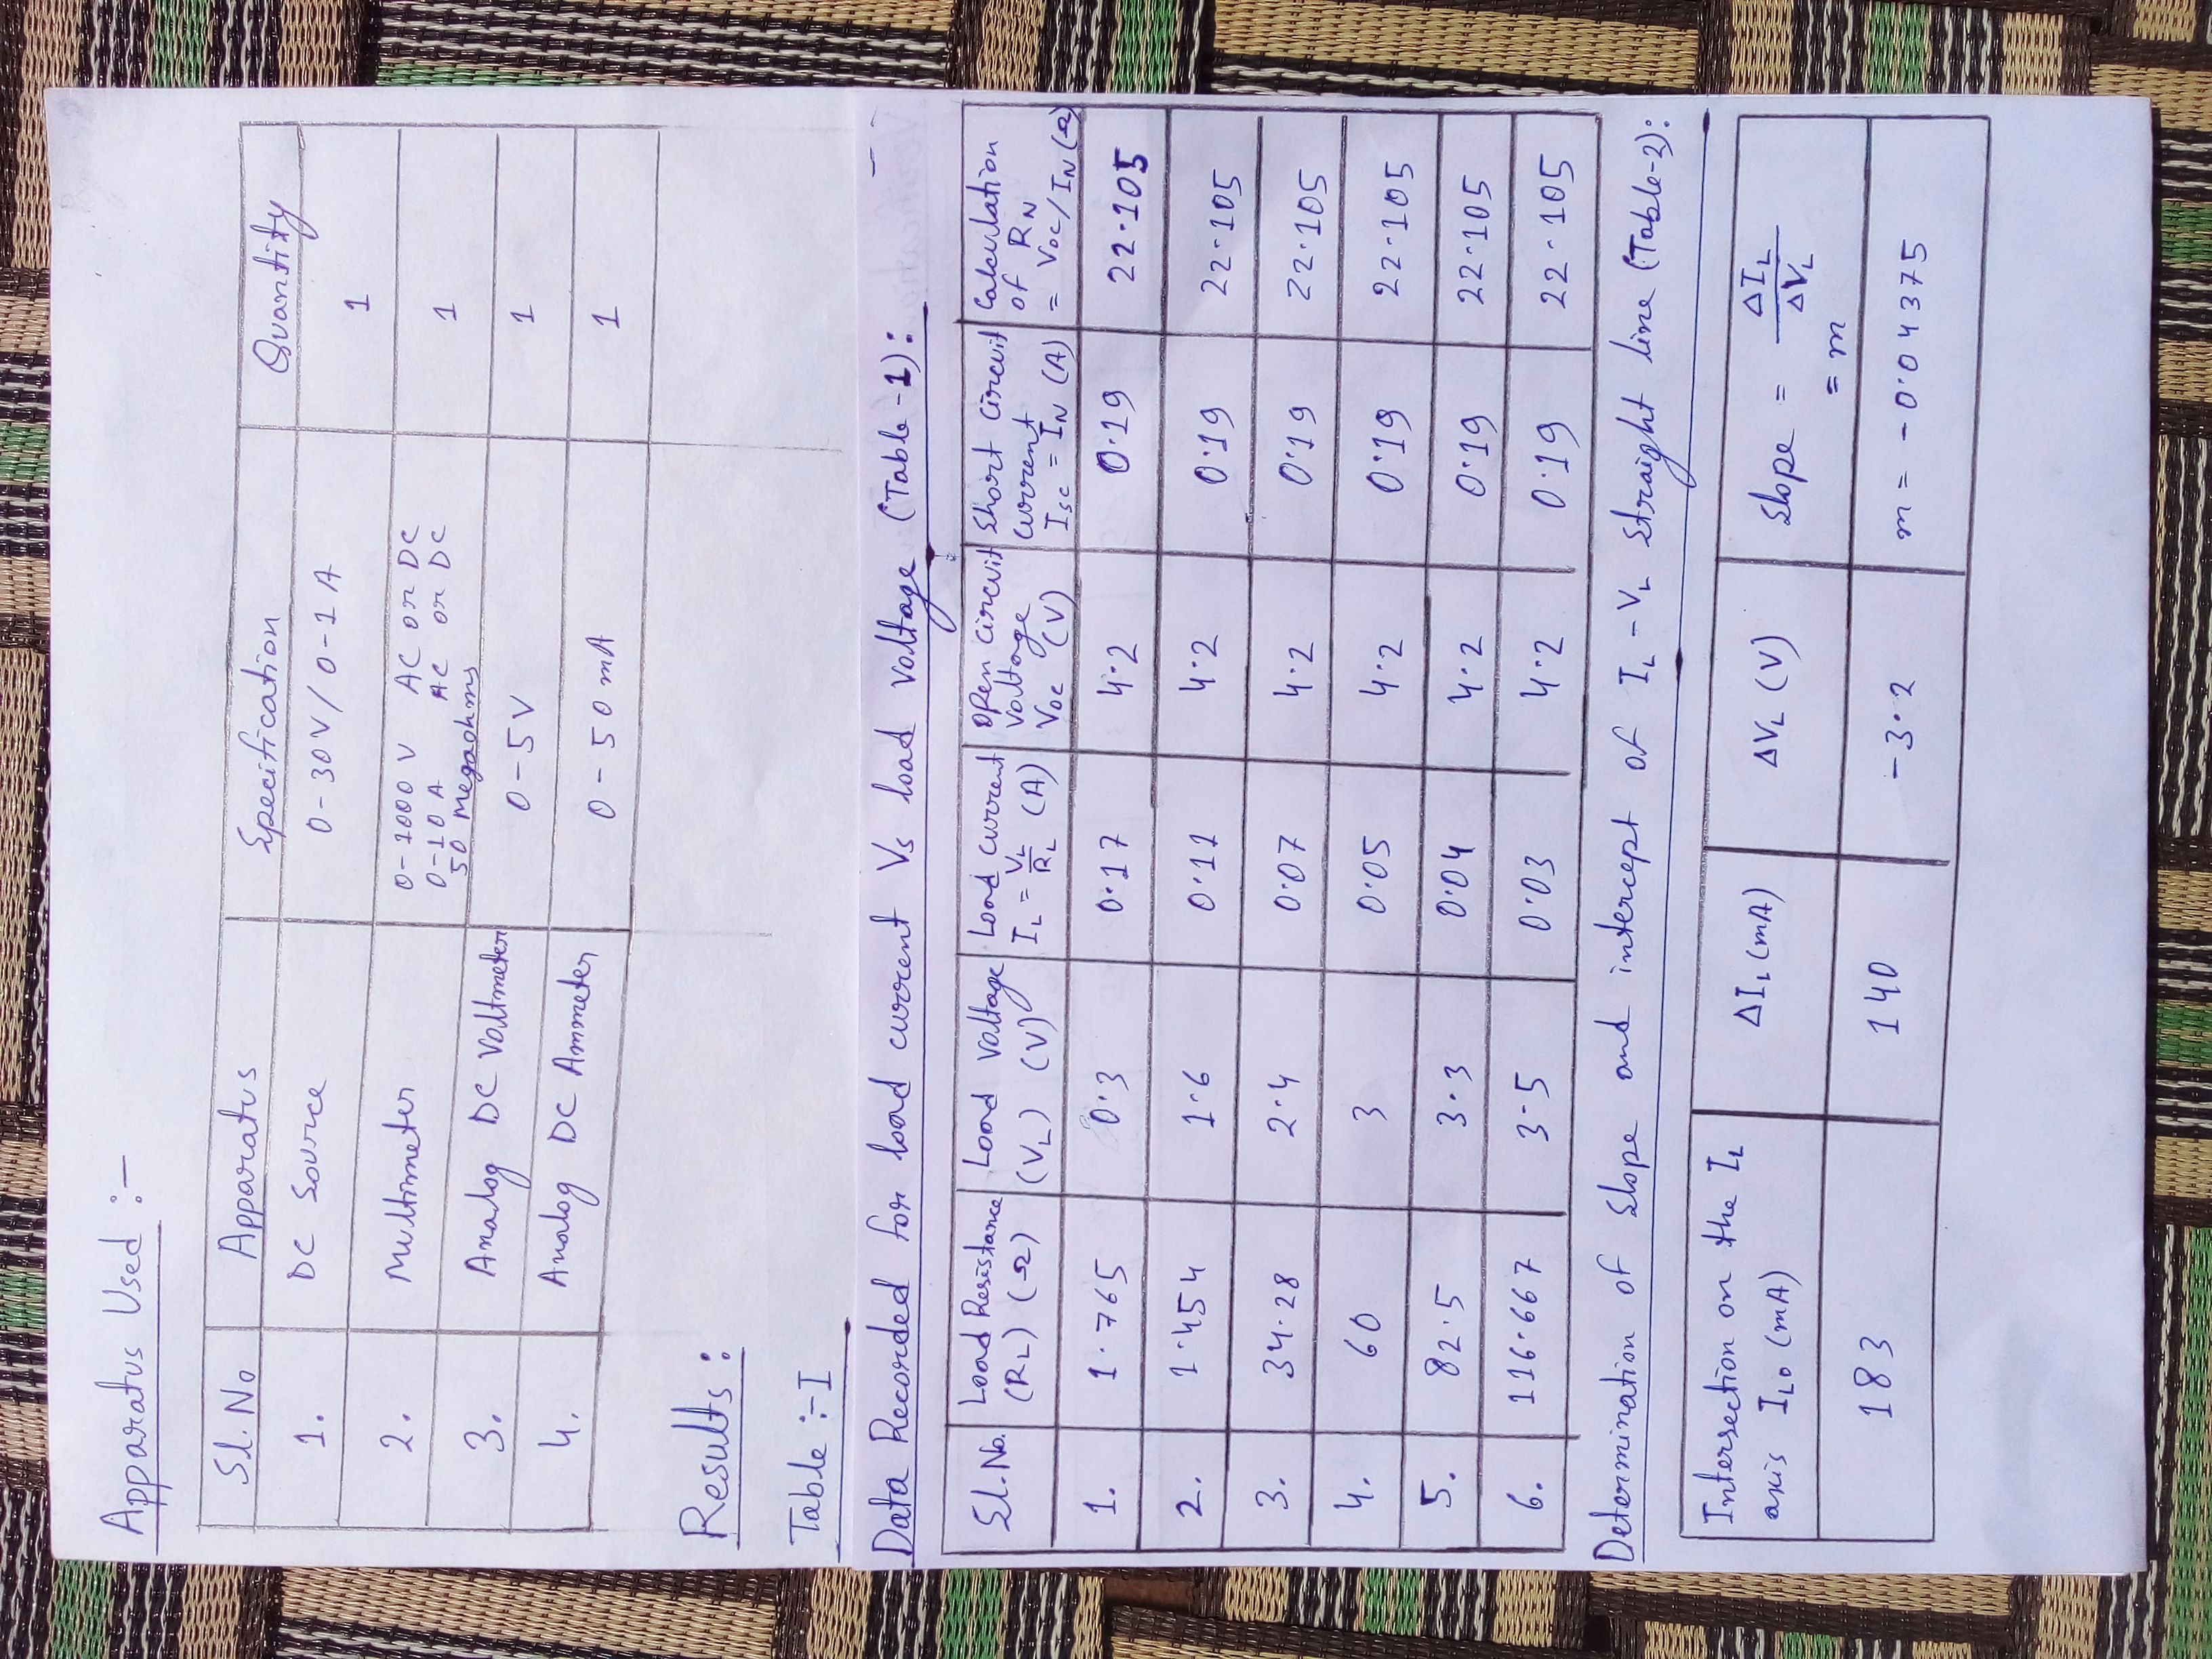 Apparatus Used :-
Sl. No Apparatus Specification Quantity
1. DC Source 0-30V/ 0-1 A 1
2. Multimeter 0-1000 V AC or DC 1
0-10 A AC or DC
50 Megaohms
3. Analog DC Voltmeter 0-5V 1
4. Analog DC Ammeter 0-50 mA 1
Results :
Table :- I
Data Recorded for load current Vs load voltage (Table-1):
Sl. No. Load Resistance (RL) (Ω) Load voltage (VL) (V) Load current IL = VL/RL (A) Open circuit voltage Voc (V) Short circuit current Isc = IN (A) Calculation of RN = Voc/IN (Ω)
1. 1.765 0.3 0.17 4.2 0.19 22.105
2. 1.454 1.6 0.11 4.2 0.19 22.105
3. 34.28 2.4 0.07 4.2 0.19 22.105
4. 60 3 0.05 4.2 0.19 22.105
5. 82.5 3.3 0.04 4.2 0.19 22.105
6. 116.667 3.5 0.03 4.2 0.19 22.105
Determination of slope and intercept of IL - VL straight line (Table-2):
Intersection on the IL axis ILO (mA) ΔIL (mA) ΔVL (V) Slope = ΔIL/ΔVL = m
183 140 -3.2 m = -0.04375